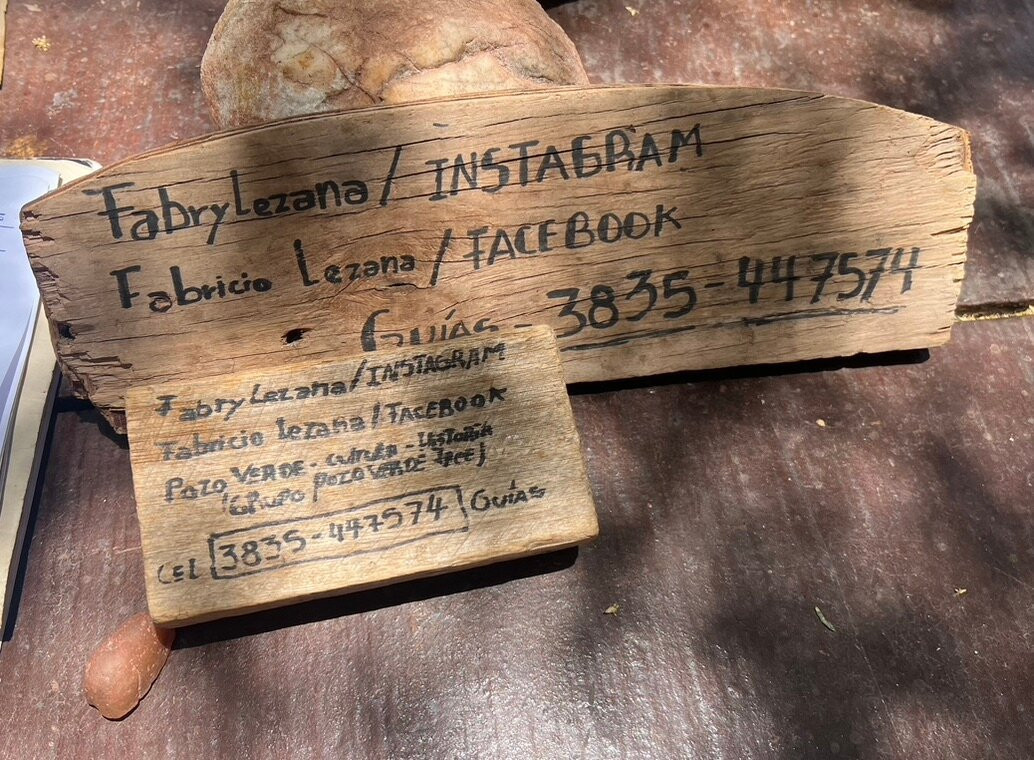 FabryLezana/ INSTAGRAM
Fabricio Lezana / FACEBOOK
GUÍAS - 3835-447574
Fabry Lezana/INSTAGRAM
Fabricio Lezana/FACEBOOK
POZO VERDE - 
"GRUPO POZO VERDE
CEL 3835-447574 GUÍAS